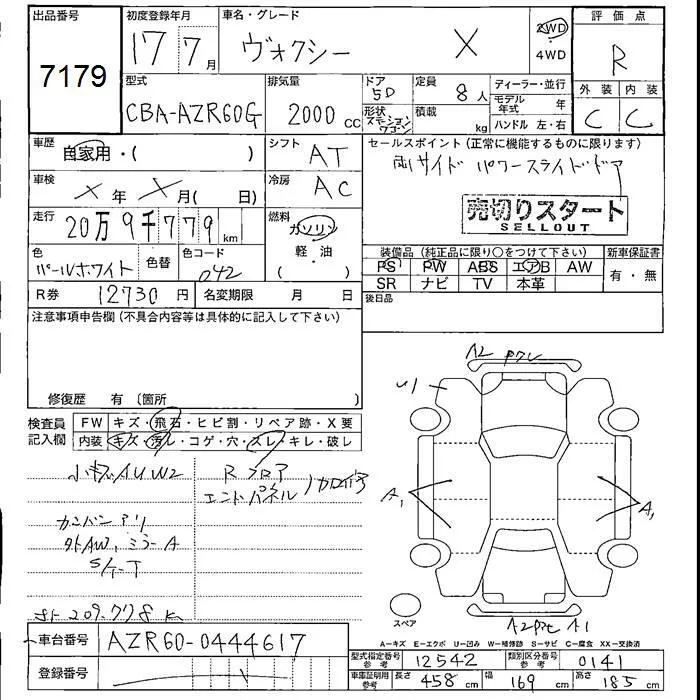 出品番号
7179
初度登録年月
17 7月
車名・グレード
ヴォクシー X
2WD
4WD
評価点
R
外装 内装
C C
型式
CBA-AZR60G
排気量
2000 cc
ドア
5D
形状
ステーションワゴン
定員
8人
積載
kg
ディーラー・並行
モデル年式 年
ハンドル 左・右
車歴
自家用・( )
シフト
AT
セールスポイント (正常に機能するものに限ります)
両サイド パワースライドドア
売切りスタート
SELLOUT
車検
X年 X月( 日)
冷房
AC
走行
20万9千779km
燃料
ガソリン
軽・油
( )
色
パールホワイト
色替
色コード
042
装備品 (純正品に限り○をつけて下さい)
新車保証書
PS PW ABS エアB AW
有・無
SR ナビ TV 本革
R券 12730円
名変期限 月 日
後日品
注意事項申告欄 (不具合内容等は具体的に記入して下さい)
修復歴 有 〔箇所 〕
検査員記入欄
FW キズ・飛石・ヒビ割・リペア跡・X要
内装 キズ・汚レ・コゲ・穴・スレ・キレ・破レ
小キズAUW2
Rフロア
エンドパネル
カンバンアリ
外AW,ミラーA
S/T-T
A2
U1
A1
A1
A2
A1
スペア
A-キズ E-エクボ U-凹み W-補修跡 S-サビ C-腐食 XX-交換済
車台番号 AZR60-0444617
登録番号
型式指定番号 参考 12542
類別区分番号 参考 0141
車庫証明用 参考 長さ 458cm 幅 169cm 高さ 185cm